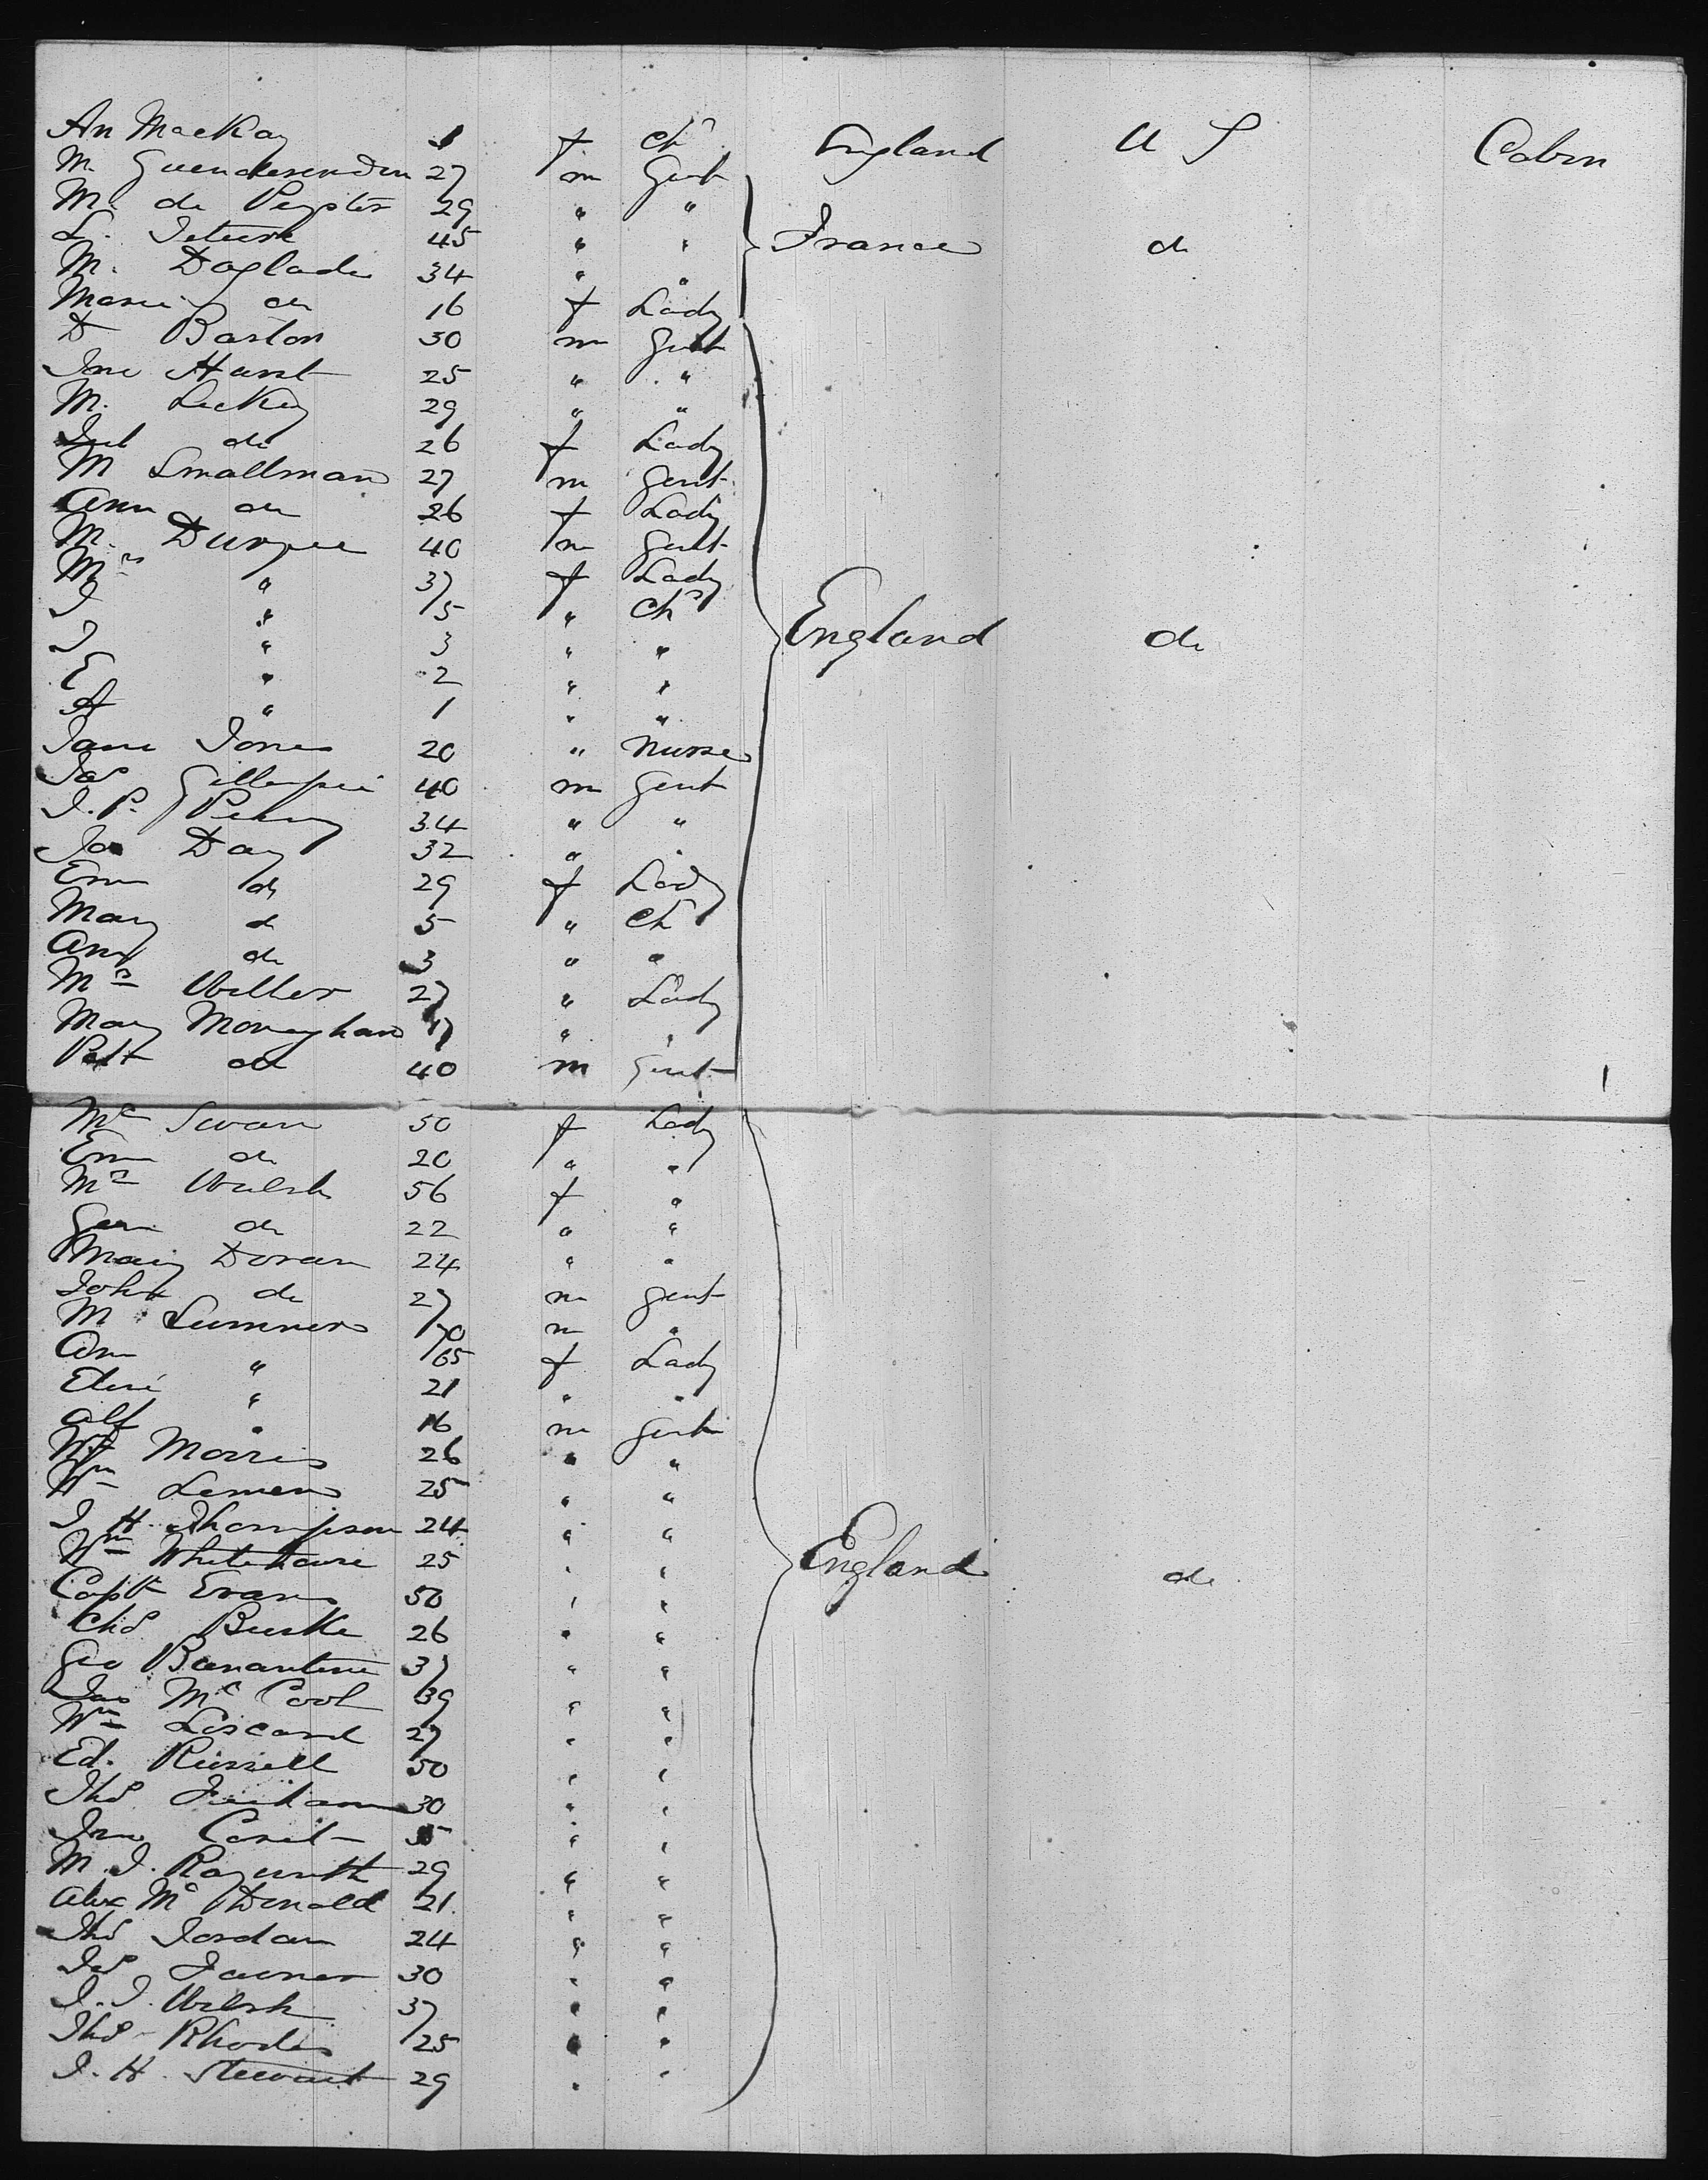 An MacKay 1 f Ch England U S Cabin
M. 27 m Gent
M. de Peyster 29 " "
L. 45 " " France do
M. Daglade 34 " "
Marie do 16 f Lady
D Barlon 30 m Gent
Jno Hurst 25 " "
M. Lecky 29 " "
do 26 f Lady
M Smallman 27 m Gent
Ann do 26 f Lady
M. Duryee 40 m Gent
Mrs " 37 f Lady
J " 5 " Ch
J " 3 " " England do
E " 2 " "
A " 1 " "
Jane Jones 20 " Nurse
Jas Gillespie 40 m Gent
J. P. Perry 34 " "
Jos Day 32 " "
Em do 29 f Lady
Mary do 5 " Ch
Amy do 3 " "
Mrs Weller 27 " Lady
Mary Monaghan 17 " "
Pat do 40 m Gent
Mrs Swan 50 f Lady
Em do 20 " "
Mrs Walsh 56 f "
do 22 " "
Mary Doran 24 " "
John do 27 m Gent
M Sumner 70 m "
Ann " 65 f Lady
" 21 " "
Alf " 16 m Gent
Morris 26 " "
Wm Lemen 25 " "
J H. Thompson 24 " "
Wm Whitehouse 25 " " England do
Capt Evans 50 " "
Chs Burke 26 " "
Geo Banantine 37 " "
Jas McCool 39 " "
Wm Liscard 27 " "
Ed. Russell 50 " "
Ths 30 " "
Jno " "
M. J. 29 " "
Alex McDonald 21. " "
Ths Jordan 24 " "
Js 30 " "
J. J. Walsh 37 " "
Ths Rhodes 25 " "
J. H. Stewart 29 " "